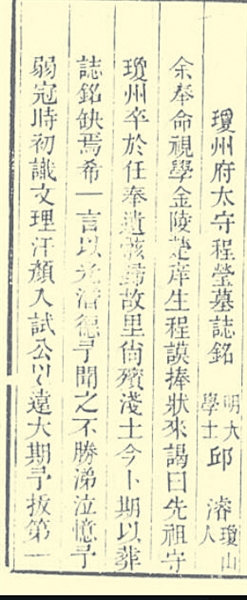 瓊州府太守程瑩墓誌銘 明大學士邱濬瓊山人
余奉命視學金陵楚庠生程謨捧狀來謁曰先祖守
瓊州卒於任奉遺骸歸故里尙殯淺土今卜期以葬
誌銘缺焉希一言以光潛德予聞之不勝涕泣憶予
弱冠時初識文理汗顏入試公以遠大期予拔第一